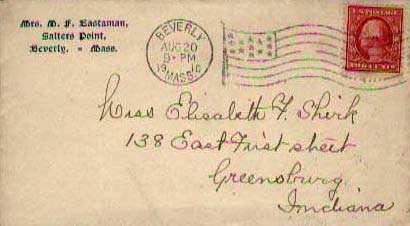 Mrs. M. F. Eastaman,
Salters Point,
Beverly. - Mass.
BEVERLY
AUG 20
9-PM
1910
MASS.
Miss Elisabeth F. Shirk
138 East First street
Greensburg
Indiana